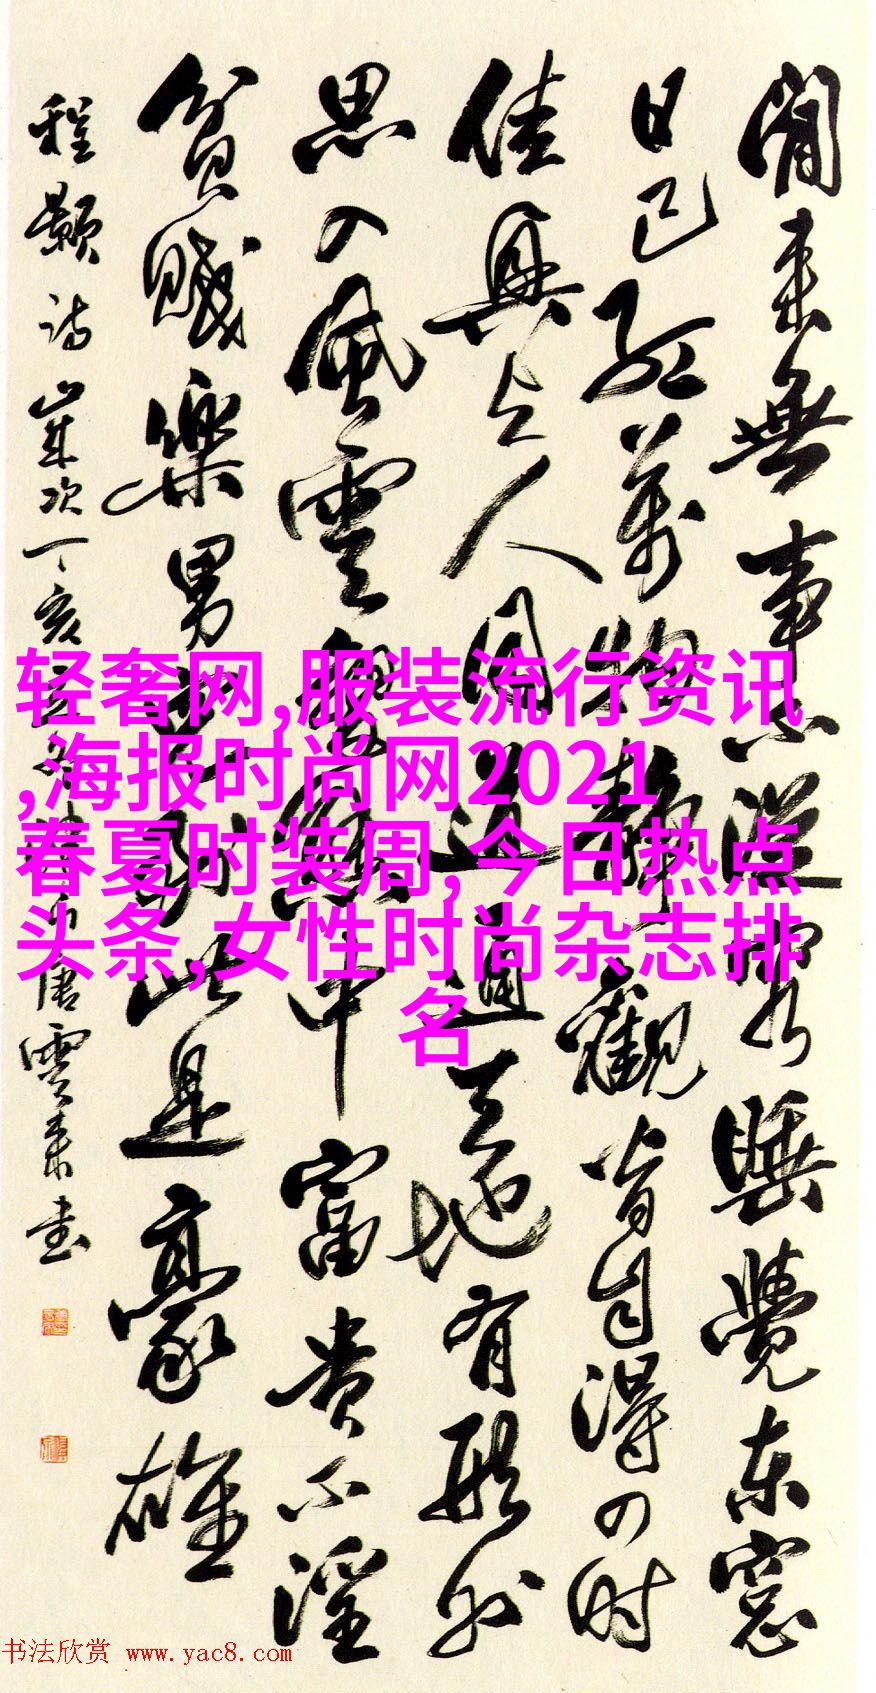 閒来無事不從容睡覺东窓
日已红万物静觀皆自得四时
佳興与人同道通天地有形外
思入風雲變態中富贵不淫
貧賤樂男兒到此是豪雄
程颢诗歲次丁亥
唐雲来书
轻奢网,服装流行资讯
,海报时尚网2021
春夏时装周,今日热点
头条,女性时尚杂志排
名
书法欣赏 www.yac8.com